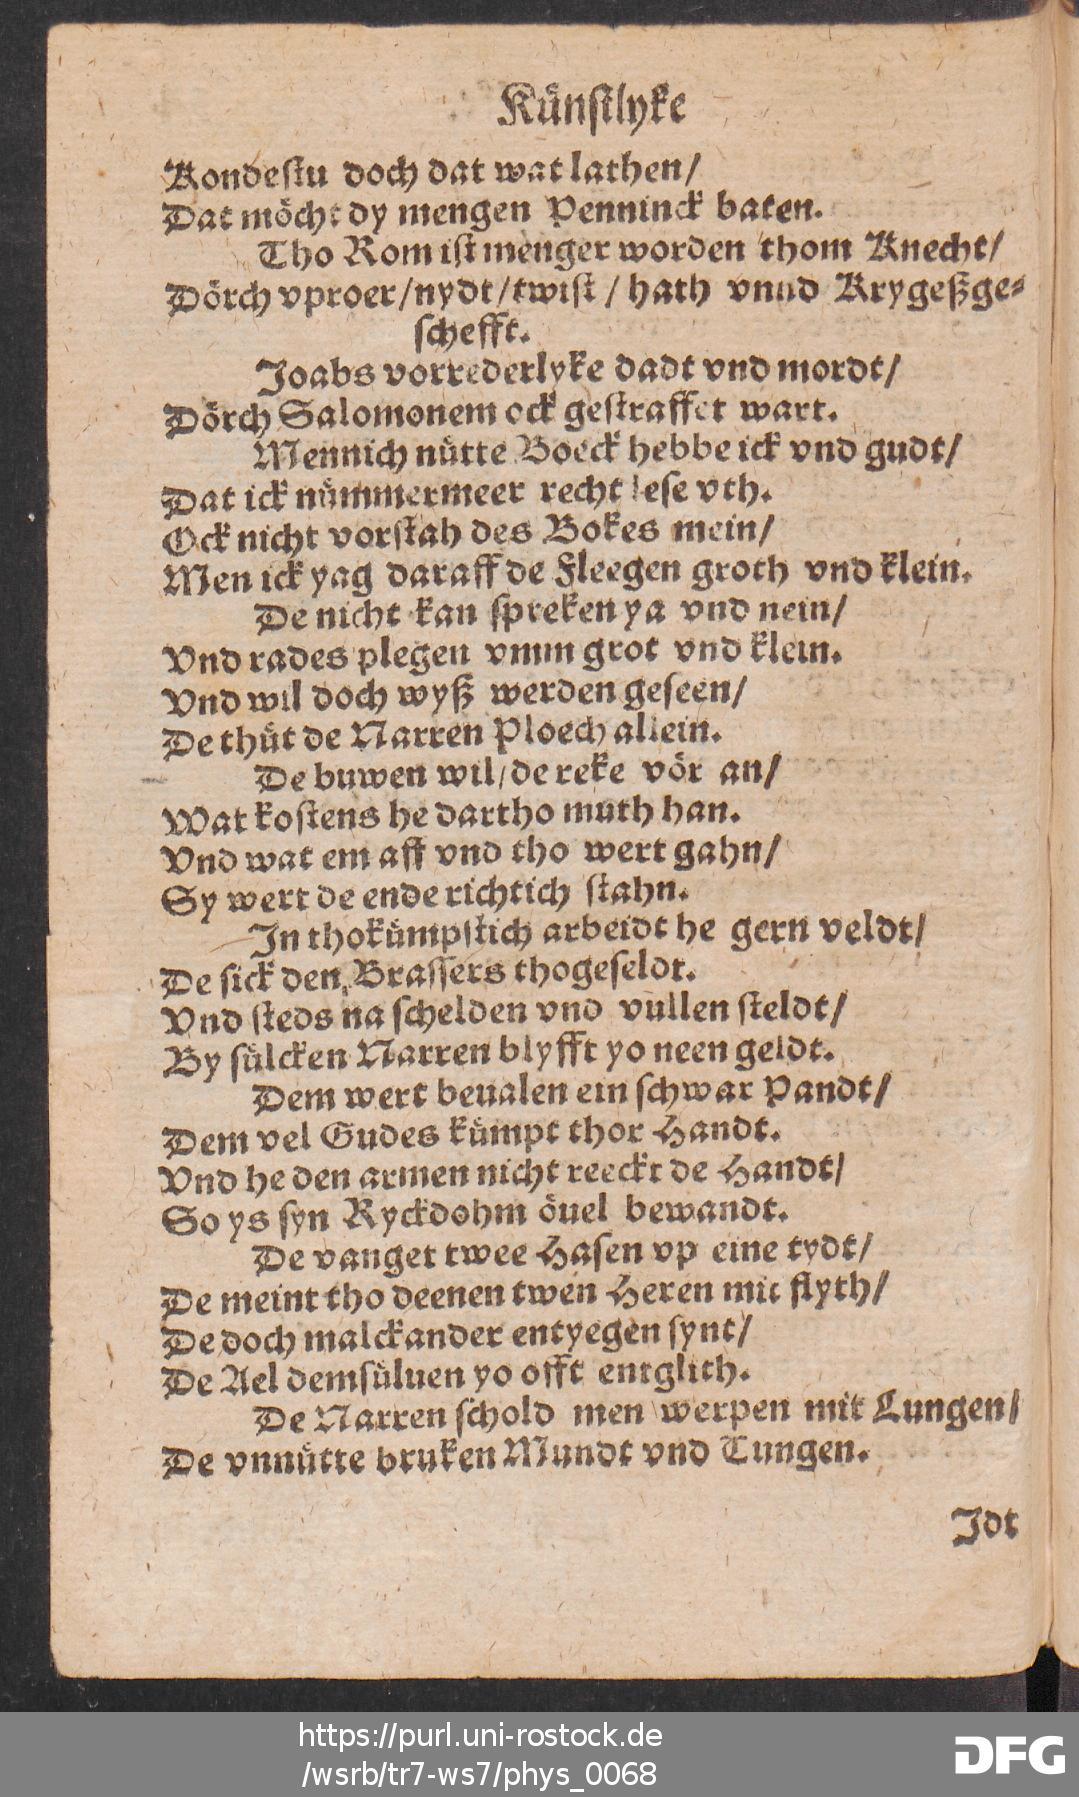 Künstlyke
Kondestu doch dat wat lathen/
Dat möcht dy mengen Penninck baten.
Tho Rom ist menger worden thom Knecht/
Dörch vproer/nydt/twist/ hath vnnd Krygeßge⸗
schefft.
Joabs vorrederlyke dadt vnd mordt/
Dörch Salomonem ock gestraffet wart.
Mennich nütte Boeck hebbe ick vnd gudt/
Dat ick nümmermeer recht lese vth.
Ock nicht vorstah des Bokes mein/
Men ick yag daraff de Fleegen groth vnd klein.
De nicht kan spreken ya vnd nein/
Vnd rades plegen vmm grot vnd klein.
Vnd wil doch wyß werden geseen/
De thüt de Narren Ploech allein.
De buwen wil/de reke vör an/
Wat kostens he dartho muth han.
Vnd wat em aff vnd tho wert gahn/
Sy wert de ende richtich stahn.
In thokümpstich arbeidt he gern veldt/
De sick den Brassers thogeseldt.
Vnd steds na schelden vnd vullen steldt/
By sülcken Narren blyfft yo neen geldt.
Dem wert beualen ein schwar Pandt/
Dem vel Gudes kümpt thor Handt.
Vnd he den armen nicht reeckt de Handt/
So ys syn Ryckdohm öuel bewandt.
De vanget twee Hasen vp eine tydt/
De meint tho deenen twen Heren mit flyth/
De doch malckander entyegen synt/
De Ael demsüluen yo offt entglith.
De Narren schold men werpen mit Lungen/
De vnnütte bruken Mundt vnd Tungen.
Idt
https://purl.uni-rostock.de
/wsrb/tr7-ws7/phys_0068
DFG